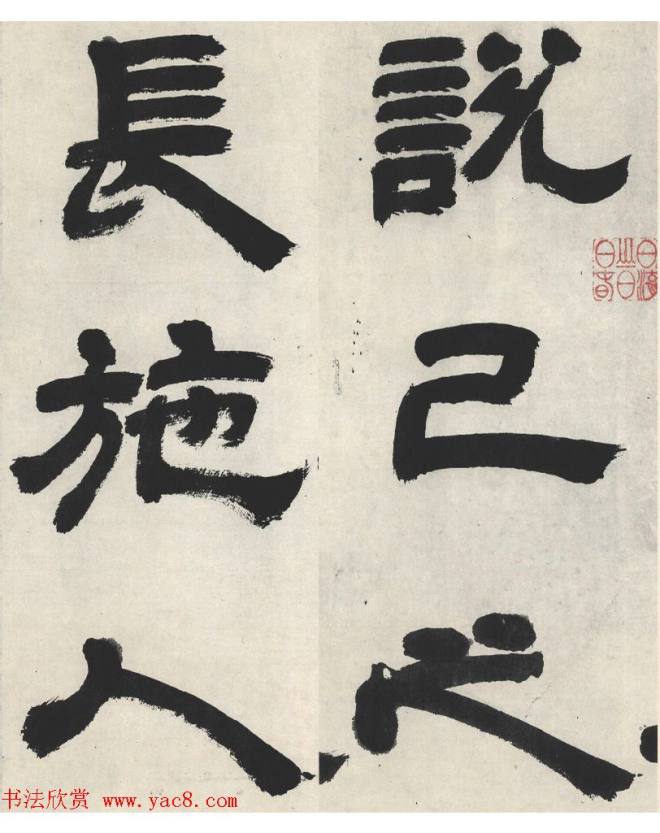 說己之
長施人
书法欣赏 www.yac8.com